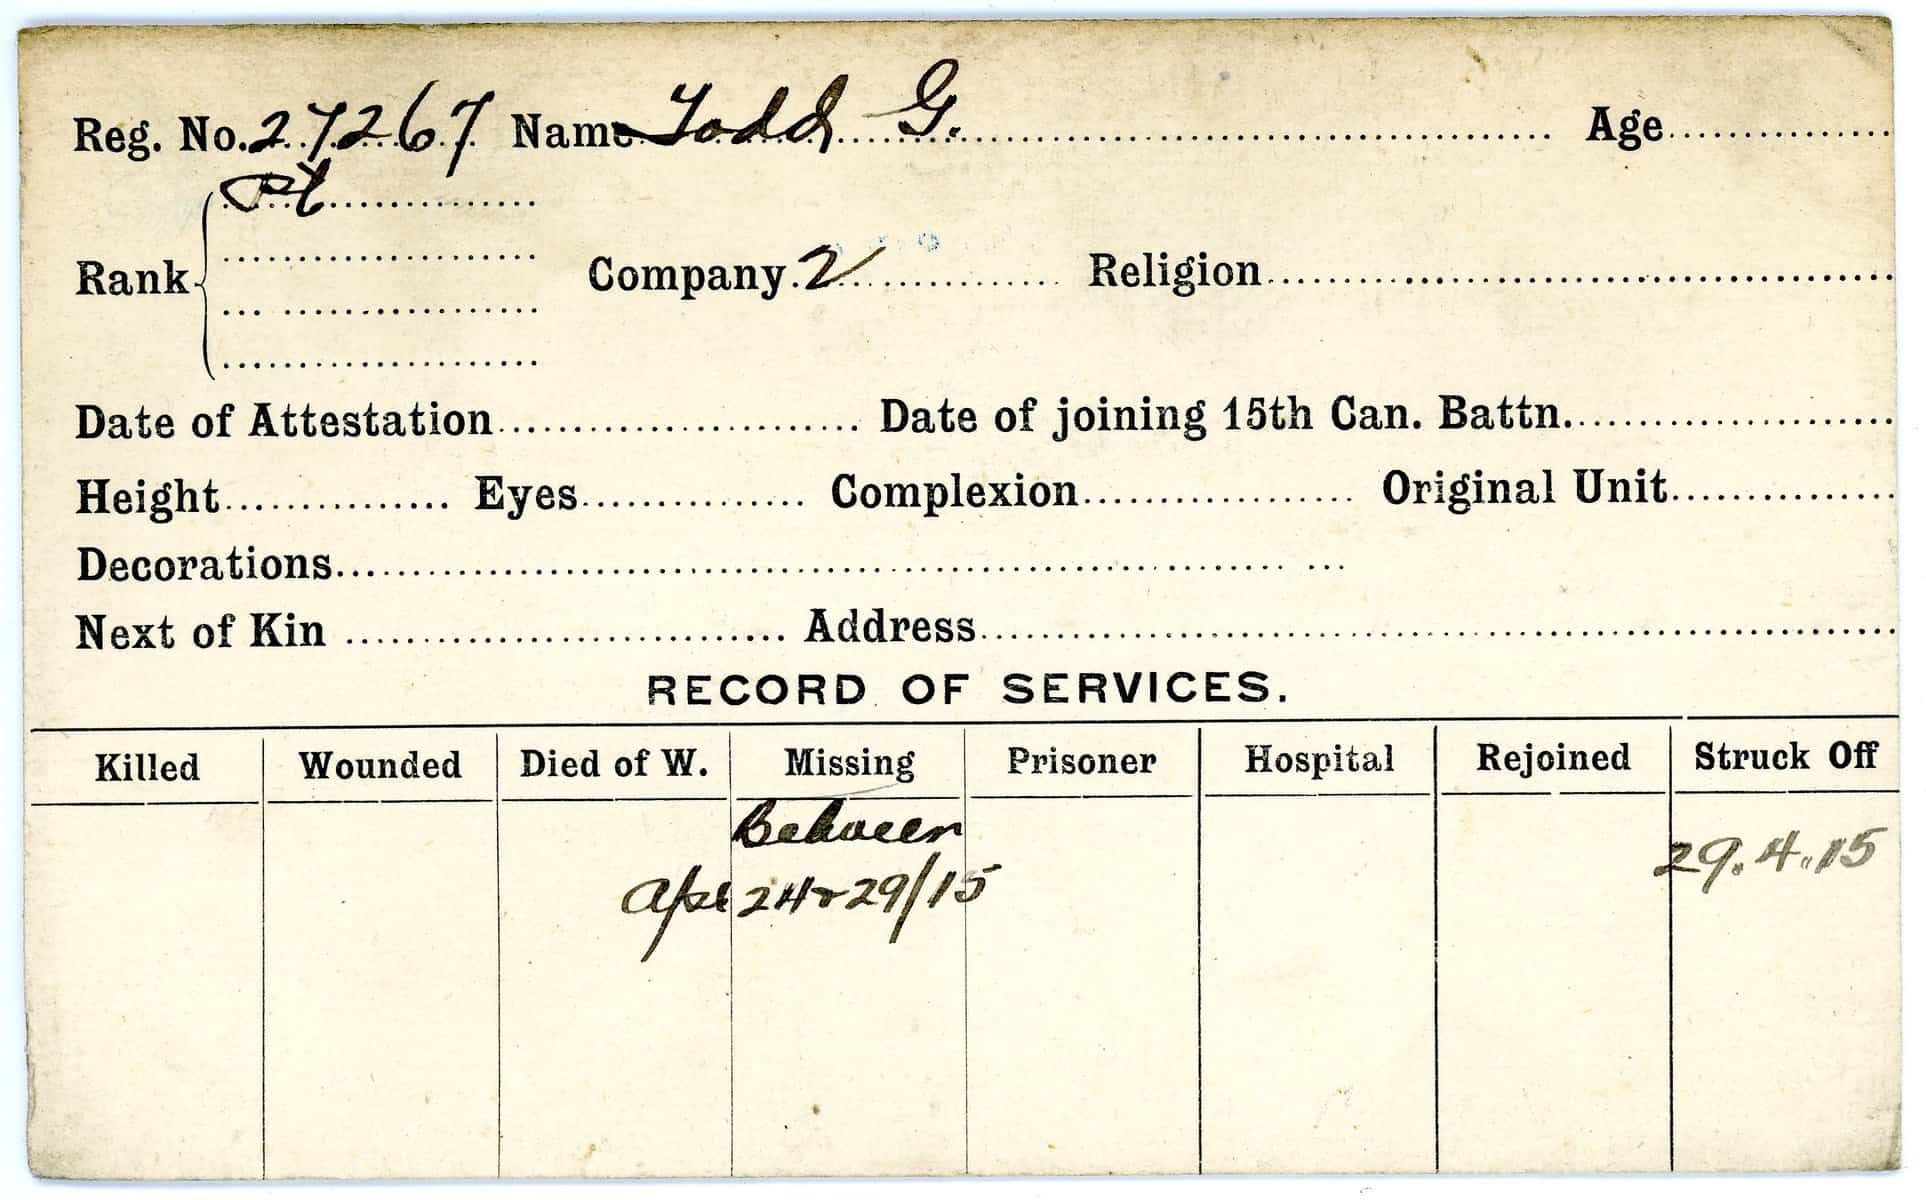 Reg. No. 27267 Name Todd G. Age
Pt
Rank Company 2 Religion
Date of Attestation Date of joining 15th Can. Battn.
Height Eyes Complexion Original Unit
Decorations
Next of Kin Address
RECORD OF SERVICES.
Killed Wounded Died of W. Missing Prisoner Hospital Rejoined Struck Off
Between
29.4.15
Apl 24 & 29/15